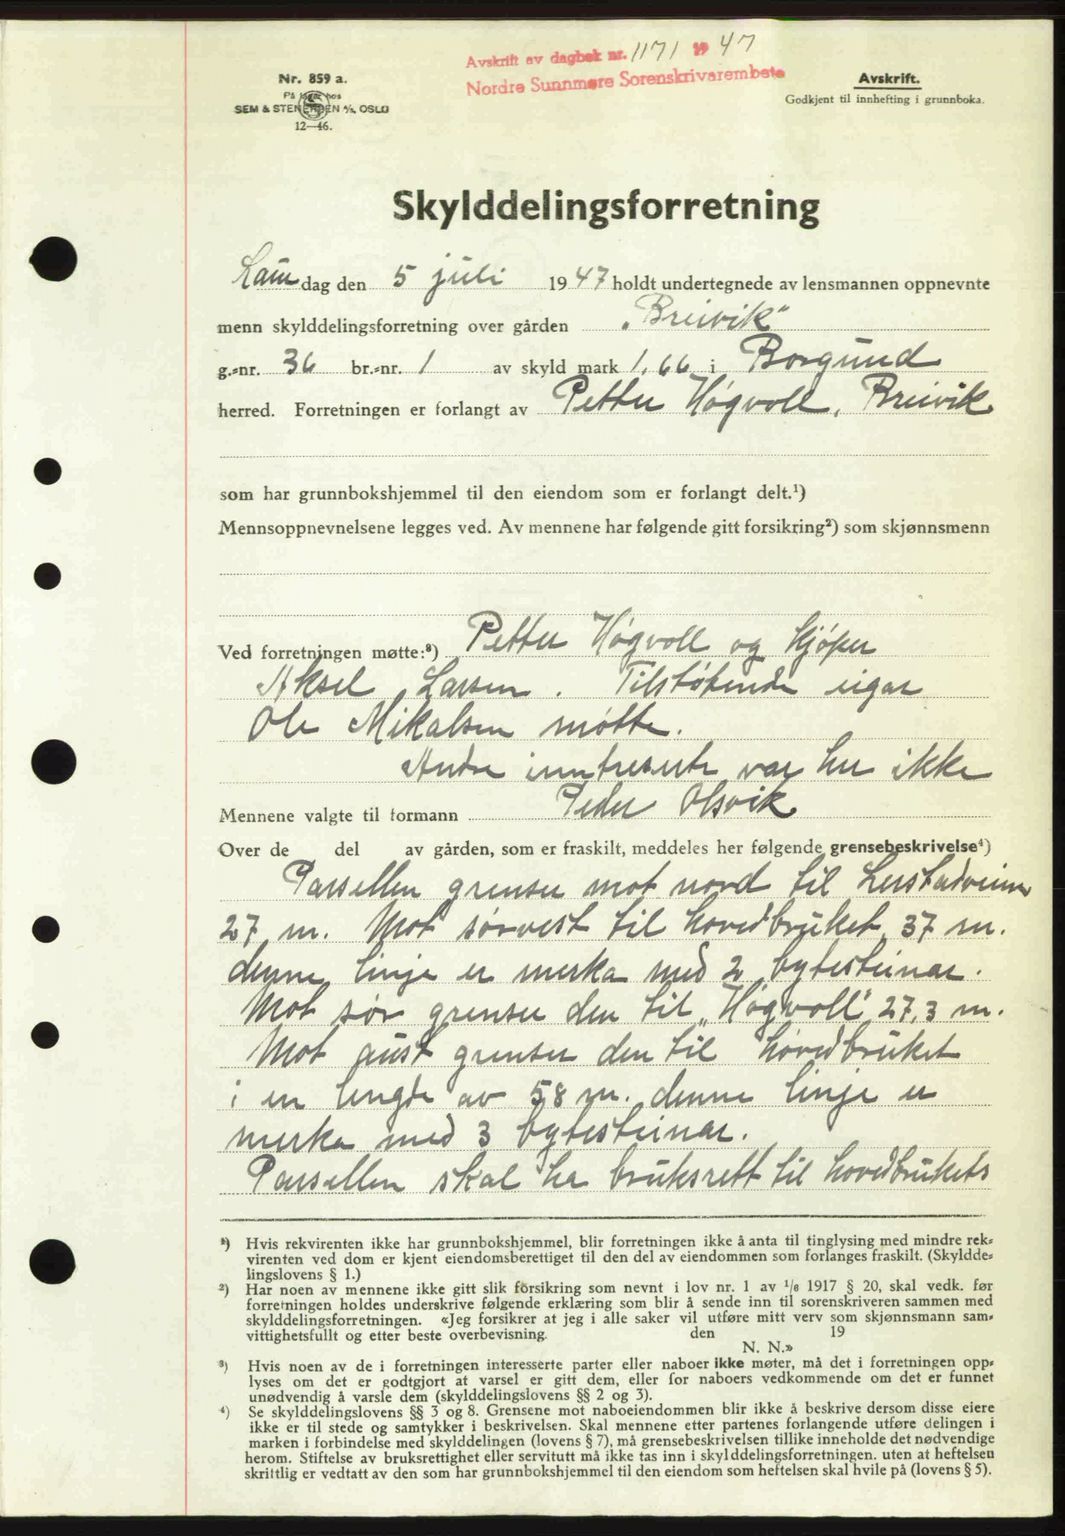 Avskrift av dagbok nr. 1171 19 47
Nordre Sunnmøre Sorenskrivarembete
Nr. 859 a.
På lager hos
SEM & STENERSEN A/S, OSLO
12—46.
Avskrift.
Godkjent til innhefting i grunnboka.
Skylddelingsforretning
Lau dag den 5 juli 1947 holdt undertegnede av lensmannen oppnevnte
menn skylddelingsforretning over gården „Breivik"
g.-nr. 36 br.-nr. 1 av skyld mark 1,66 i Borgund
herred. Forretningen er forlangt av Petter Høgvoll, Breivik
som har grunnbokshjemmel til den eiendom som er forlangt delt.¹)
Mennsoppnevnelsene legges ved. Av mennene har følgende gitt forsikring²) som skjønnsmenn
Ved forretningen møtte:³) Petter Høgvoll og kjøper
Aksel Larsen. Tilstøtende eigar
Ole Mikalsen møtte.
Andre inntreserte var her ikke
Mennene valgte til formann Peder Olsvik
Over de del av gården, som er fraskilt, meddeles her følgende grensebeskrivelse⁴)
Parsellen grenser mot nord til Lerstadveien
27 m. Mot sørvest til hovedbruket 37 m.
denne linje er merka med 2 bytesteinar.
Mot sør grenser den til „Høgvoll" 27,3 m.
Mot aust grenser den til hovedbruket
i en lengde av 58 m. denne linje er
merka med 3 bytesteinar.
Parsellen skal ha bruksrett til hovedbrukets
¹) Hvis rekvirenten ikke har grunnbokshjemmel, blir forretningen ikke å anta til tinglysing med mindre rek-
virenten ved dom er kjent eiendomsberettiget til den del av eiendommen som forlanges fraskilt. (Skyldde-
lingslovens § 1.)
²) Har noen av mennene ikke gitt slik forsikring som nevnt i lov nr. 1 av 1/6 1917 § 20, skal vedk. før
forretningen holdes underskrive følgende erklæring som blir å sende inn til sorenskriveren sammen med
skylddelingsforretningen. «Jeg forsikrer at jeg i alle saker vil utføre mitt verv som skjønnsmann sam-
vittighetsfullt og etter beste overbevisning. den 19
N. N.»
³) Hvis noen av de i forretningen interesserte parter eller naboer ikke møter, må det i forretningen opp-
lyses om det er godtgjort at varsel er gitt dem, eller for naboers vedkommende om det er funnet
unødvendig å varsle dem (skylddelingslovens §§ 2 og 3).
⁴) Se skylddelingslovens §§ 3 og 8. Grensene mot naboeiendommen blir ikke å beskrive dersom disse eiere
ikke er til stede og samtykker i beskrivelsen. Skal mennene etter partenes forlangende utføre delingen i
marken i forbindelse med skylddelingen (lovens § 7), må grensebeskrivelsen tillike inneholde det nødvendige
herom. Stiftelse av bruksrettighet eller servitutt må ikke tas inn i skylddelingsforretningen, uten at heftelsen
skriftlig er vedtatt av den som har grunnbokshjemmel til den eiendom som heftelsen skal hvile på (lovens § 5).